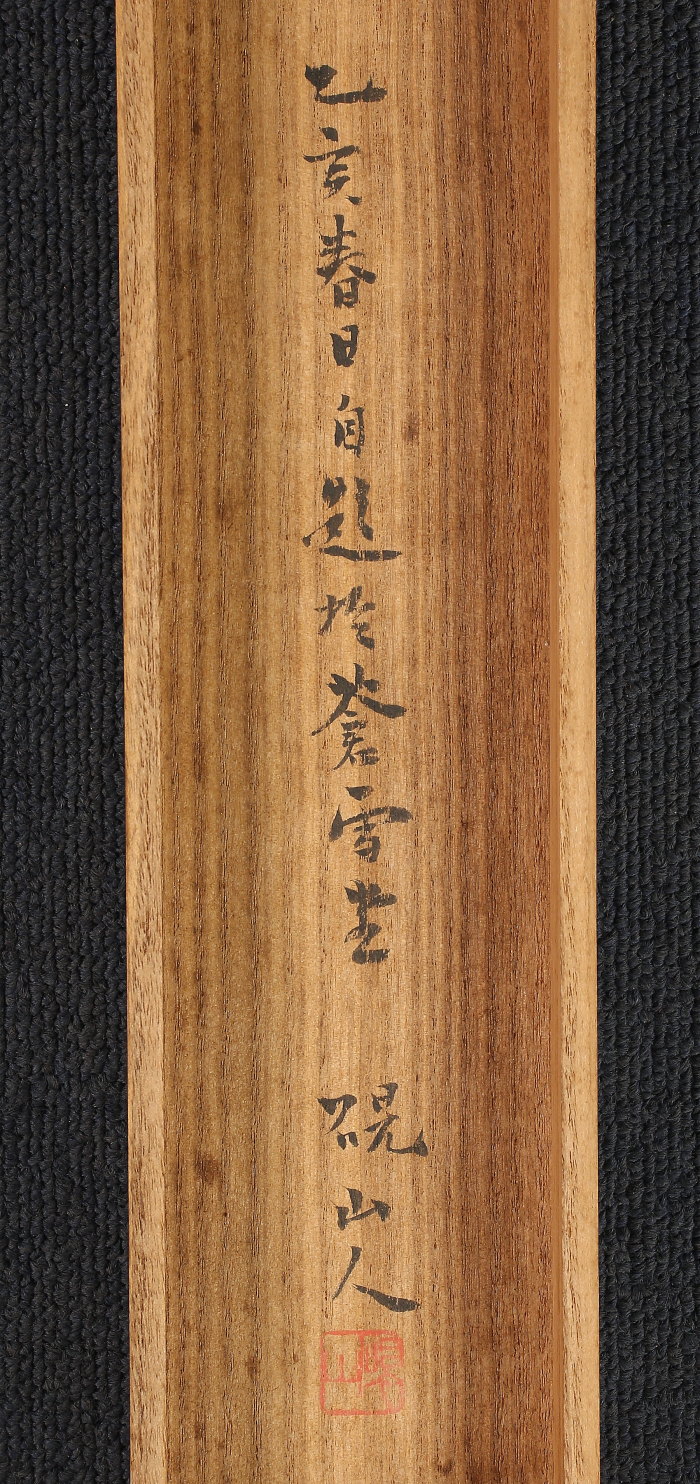 乙亥春日自題於蒼雪堂 硯山人